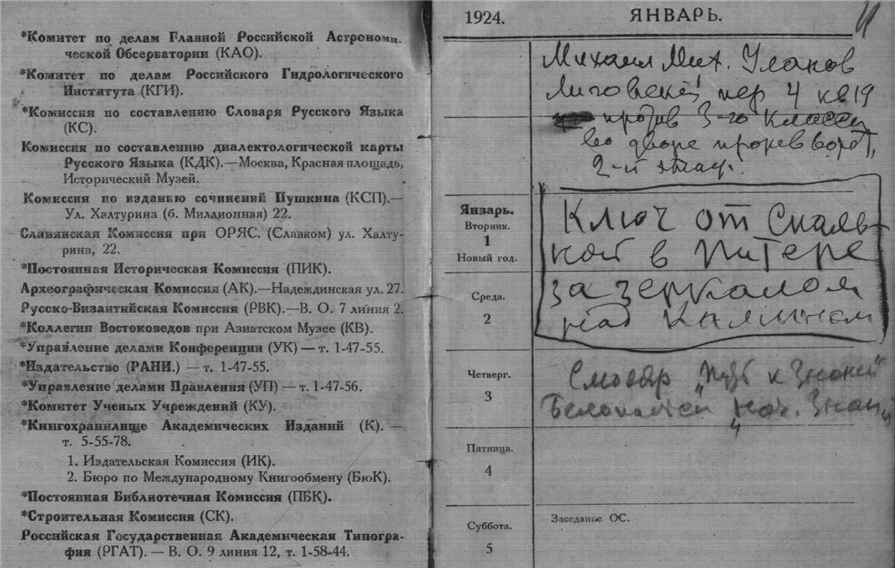 *Комитет по делам Главной Российской Астрономи-
ческой Обсерватории (КАО).
*Комитет по делам Российского Гидрологического
Института (КГИ).
*Комиссия по составлению Словаря Русского Языка
(КС).
Комиссия по составлению диалектологической карты
Русского Языка (КДК).—Москва, Красная площадь,
Исторический Музей.
Комиссия по изданию сочинений Пушкина (КСП).—
Ул. Халтурина (б. Миллионная) 22.
Славянская Комиссия при ОРЯС. (Славком) ул. Халту-
рина, 22.
*Постоянная Историческая Комиссия (ПИК).
Археографическая Комиссия (АК).—Надеждинская ул. 27.
Русско-Византийская Комиссия (РВК).—В. О. 7 линия 2.
*Коллегия Востоковедов при Азиатском Музее (КВ).
*Управление делами Конференции (УК) — т. 1-47-55.
*Издательство (РАНИ.) — т. 1-47-55.
*Управление делами Правления (УП) — т. 1-47-56.
*Комитет Ученых Учреждений (КУ).
*Книгохранилище Академических Изданий (К). —
т. 5-55-78.
1. Издательская Комиссия (ИК).
2. Бюро по Международному Книгообмену (БюК).
*Постоянная Библиотечная Комиссия (ПБК).
*Строительная Комиссия (СК).
Российская Государственная Академическая Типогра-
фия (РГАТ). — В. О. 9 линия 12, т. 1-58-44.
1924. ЯНВАРЬ.
Михаил Мих. 
Лиговский пер 4 кв 19
против 3-го класса
во дворе против ворот,
2-й этаж.
Январь.
Вторник.
1
Новый год.
Ключ от Спаль-
ной в Питере
за зеркалом
над камином
Среда.
2
Четверг.
3
Смотр „Путь к Знанию"
„Нач. Знан"
Пятница.
4
Суббота.
5
Заседание ОС.